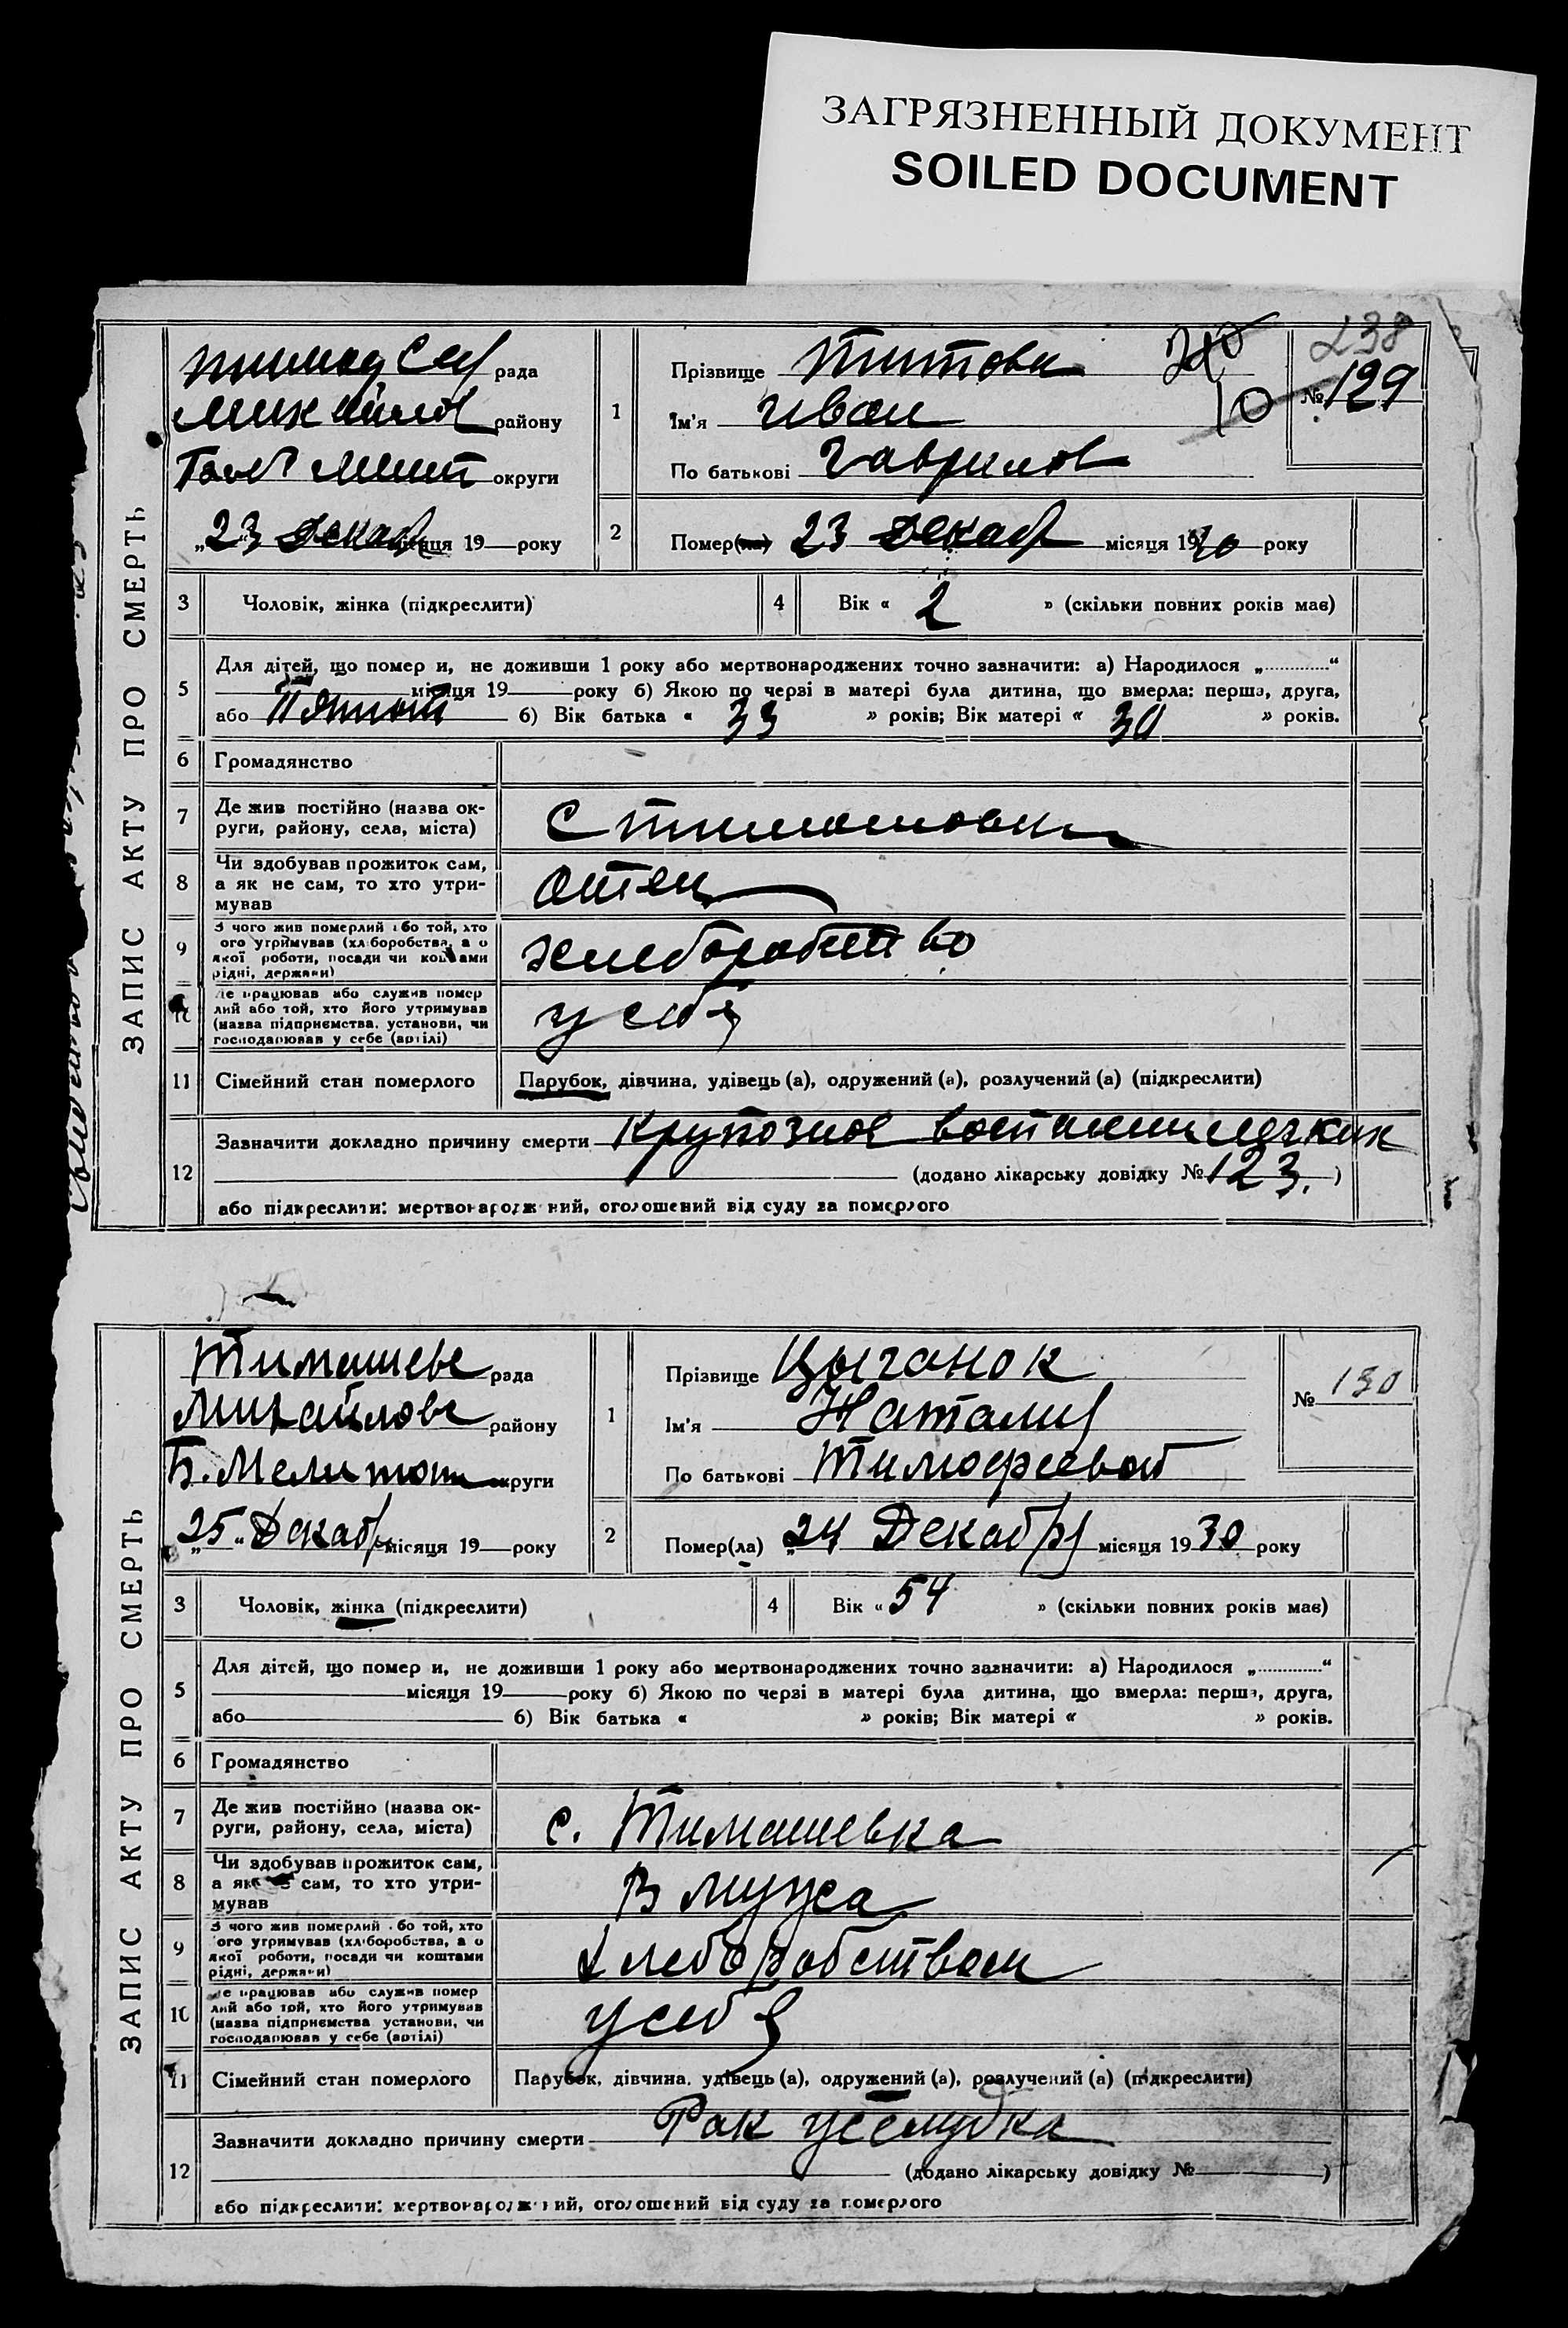 ЗАГРЯЗНЕННЫЙ ДОКУМЕНТ
SOILED DOCUMENT
ЗАПИС АКТУ ПРО СМЕРТЬ
рада
району
округи
23 Декаб місяця 19 року
1
Прізвище Титови
Ім'я Иван
По батькові Гаврилов
238
№ 129
10
2
Помер(ла) 23 Декаб місяця 1930 року
3 Чоловік, жінка (підкреслити)
4 Вік « 2 » (скільки повних років має)
5
Для дітей, що помер и, не доживши 1 року або мертвонароджених точно зазначити: а) Народилося „ “
місяця 19 року б) Якою по черзі в матері була дитина, що вмерла: перша, друга,
або б) Вік батька « 33 » років; Вік матері « 30 » років.
6 Громадянство
7
Де жив постійно (назва ок-
руги, району, села, міста)
С
8
Чи здобував прожиток сам,
а як не сам, то хто утри-
мував
Отец
9
З чого жив померлий або той, хто
його утримував (хліборобства, а о
якої роботи, посади чи коштами
рідні, держави)
10
Де працював або служив помер
лий або той, хто його утримував
(назва підприємства, установи, чи
господарював у себе (артілі)
у себя
11 Сімейний стан померлого
Парубок, дівчина, удівець (а), одружений (а), розлучений (а) (підкреслити)
12
Зазначити докладно причину смерти Крупозное воспалени легких
(додано лікарську довідку № 123. )
або підкреслити: мертвонароджений, оголошений від суду за померлого
ЗАПИС АКТУ ПРО СМЕРТЬ
Тимашеве рада
Михайлове району
Б. Мелитоп округи
„25“ Декабр місяця 19 року
1
Прізвище Цыганок
Ім'я Наталия
По батькові Тимофеевой
№ 130
2
Помер(ла) „24 Декабря місяця 1930 року
3 Чоловік, жінка (підкреслити)
4 Вік « 54 » (скільки повних років має)
5
Для дітей, що помер и, не доживши 1 року або мертвонароджених точно зазначити: а) Народилося „ “
місяця 19 року б) Якою по черзі в матері була дитина, що вмерла: перша, друга,
або б) Вік батька « » років; Вік матері « » років.
6 Громадянство
7
Де жив постійно (назва ок-
руги, району, села, міста)
с. Тимашевка
8
Чи здобував прожиток сам,
а як не сам, то хто утри-
мував
В мужа
9
З чого жив померлий або той, хто
його утримував (хліборобства, а о
якої роботи, посади чи коштами
рідні, держави)
Хлеборобством
10
Де працював або служив помер
лий або той, хто його утримував
(назва підприємства установи, чи
господарював у себе (артілі)
у себя
11 Сімейний стан померлого
Парубок, дівчина, удівець (а), одружений (а), розлучений (а) (підкреслити)
12
Зазначити докладно причину смерти Рак
(додано лікарську довідку № )
або підкреслити: мертвонароджений, оголошений від суду за померлого